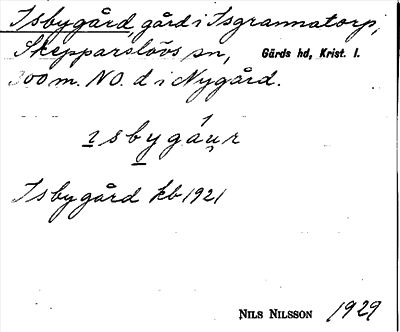 Isbygård, gård i Isgrannatorp,
Skepparslövs sn, Gärds hd, Krist. l.
300 m. NO. d i Nygård.
ısbygáu̯r
Isbygård kb 1921
NILS NILSSON 1929